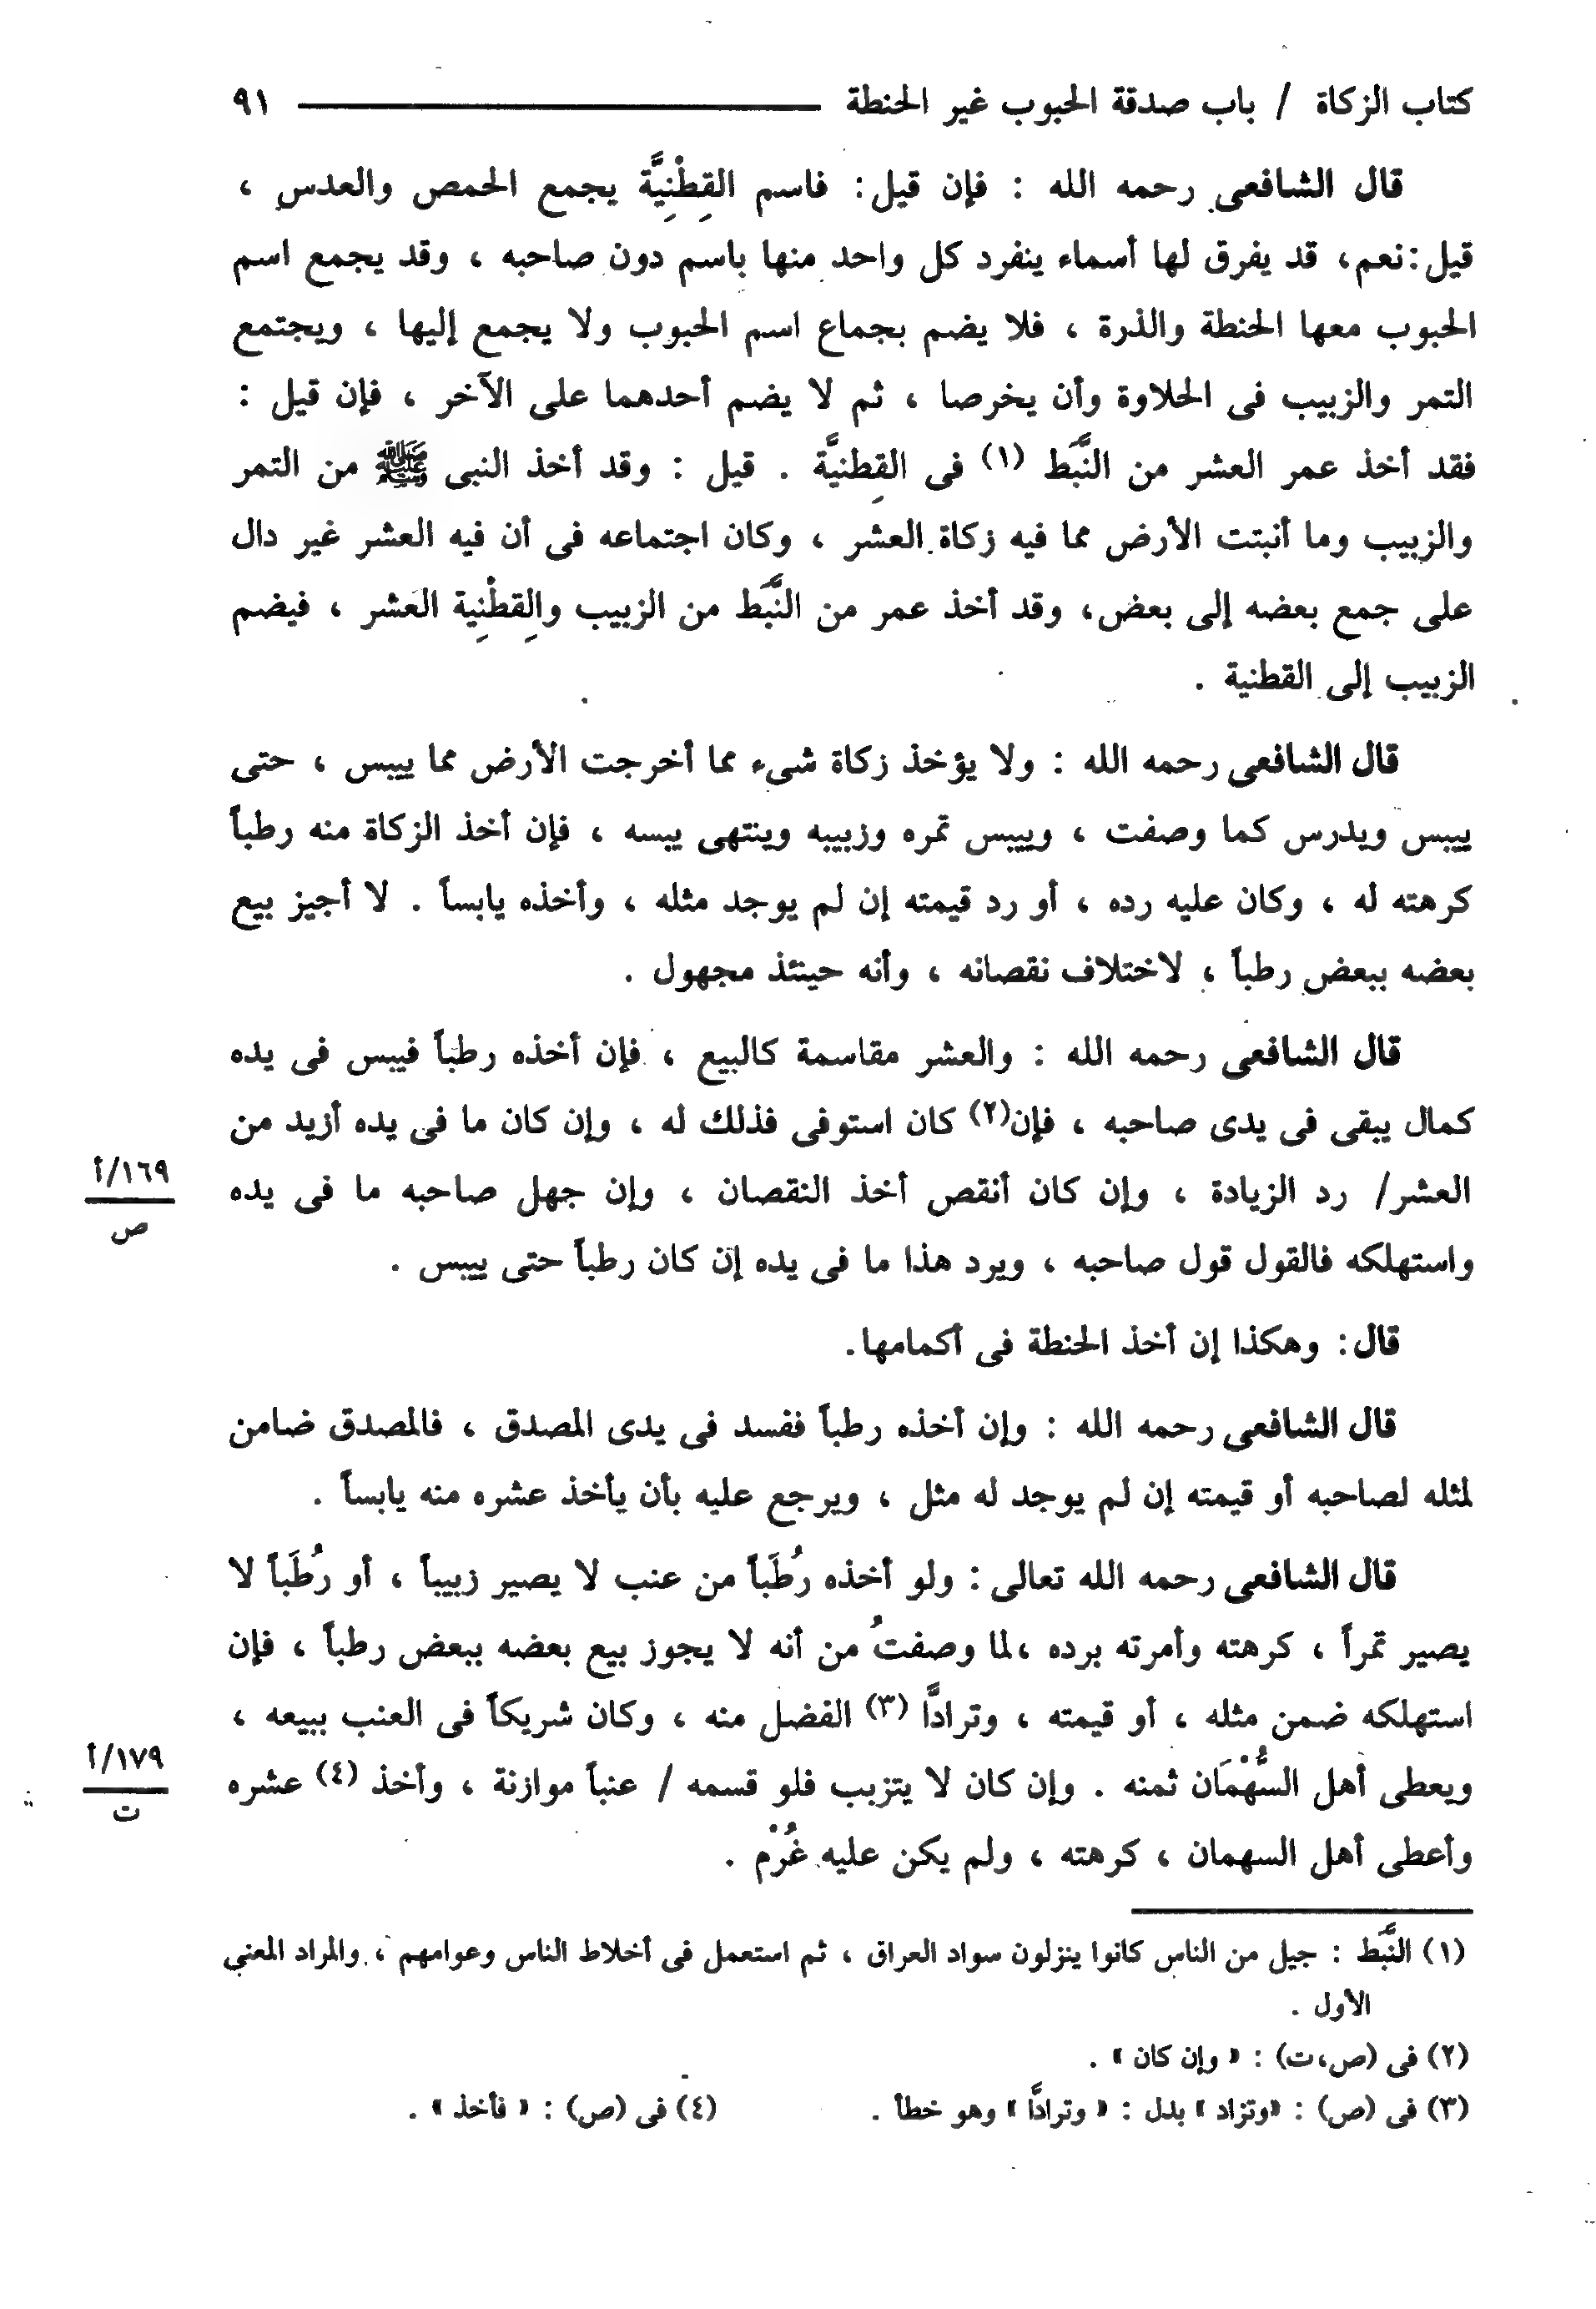 كتاب الزكاة / باب صدقة الحبوب غير الحنطة ٩١
قال الشافعى رحمه الله : فإن قيل: فاسم القِطْنِيَّة يجمع الحمص والعدس ،
قيل:نعم، قد يفرق لها أسماء ينفرد كل واحد منها باسم دون صاحبه ، وقد يجمع اسم
الحبوب معها الحنطة والذرة ، فلا يضم بجماع اسم الحبوب ولا يجمع إليها ، ويجتمع
التمر والزبيب فى الحلاوة وأن يخرصا ، ثم لا يضم أحدهما على الآخر ، فإن قيل :
فقد أخذ عمر العشر من النَّبَط (١) فى القِطنيَّة . قيل : وقد أخذ النبى ﷺ من التمر
والزبيب وما أنبتت الأرض مما فيه زكاة العشر ، وكان اجتماعه فى أن فيه العشر غير دال
على جمع بعضه إلى بعض، وقد أخذ عمر من النَّبَط من الزبيب والقِطْنِية العَشر ، فيضم
الزبيب إلى القطنية .
قال الشافعى رحمه الله : ولا يؤخذ زكاة شىء مما أخرجت الأرض مما ييبس ، حتى
ييبس ويدرس كما وصفت ، وييبس تمره وزبيبه وينتهى يبسه ، فإن أخذ الزكاة منه رطباً
كرهته له ، وكان عليه رده ، أو رد قيمته إن لم يوجد مثله ، وأخذه يابساً . لا أجيز بيع
بعضه ببعض رطباً ، لاختلاف نقصانه ، وأنه حينئذ مجهول .
قال الشافعى رحمه الله : والعشر مقاسمة كالبيع ، فإن أخذه رطباً فيبس فى يده
كمال يبقى فى يدى صاحبه ، فإن(٢) كان استوفى فذلك له ، وإن كان ما فى يده أزيد من
العشر/ رد الزيادة ، وإن كان أنقص أخذ النقصان ، وإن جهل صاحبه ما فى يده
١٦٩/أ
ص
واستهلكه فالقول قول صاحبه ، ويرد هذا ما فى يده إن كان رطباً حتى ييبس .
قال: وهكذا إن أخذ الحنطة فى أكمامها.
قال الشافعى رحمه الله : وإن أخذه رطباً ففسد فى يدى المصدق ، فالمصدق ضامن
لمثله لصاحبه أو قيمته إن لم يوجد له مثل ، ويرجع عليه بأن يأخذ عشره منه يابساً .
قال الشافعى رحمه الله تعالى : ولو أخذه رُطَباً من عنب لا يصير زبيباً ، أو رُطَباً لا
يصير تمراً ، كرهته وأمرته برده ،لما وصفتُ من أنه لا يجوز بيع بعضه ببعض رطباً ، فإن
استهلكه ضمن مثله ، أو قيمته ، وترادَّا (٣) الفضل منه ، وكان شريكاً فى العنب ببيعه ،
ويعطى أهل السُّهْمَان ثمنه . وإن كان لا يتزبب فلو قسمه / عنباً موازنة ، وأخذ (٤) عشره
١٧٩/أ
ت
وأعطى أهل السهمان ، كرهته ، ولم يكن عليه غُرْم .
(١) النَّبَط : جيل من الناس كانوا ينزلون سواد العراق ، ثم استعمل فى أخلاط الناس وعوامهم ، والمراد المعنى
الأول .
(٢) فى (ص،ت) : « وإن كان » .
(٣) فى (ص) : «وتزاد » بدل : « وترادَّا » وهو خطأ . (٤) فى (ص) : « فأخذ » .